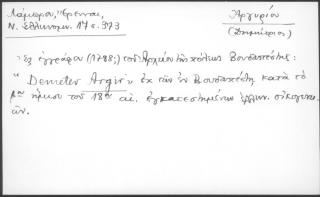 Λάμπρου, Ἔρευναι,
Ν. Ἑλληνομν. 17 σ. 373
Ἀργυρίου
(Δημήτριος)
Ἐξ ἐγγράφου (1788;) τοῦ Ἀρχείου τῆς πόλεως Βουδαπέστης:
"Demeter Argir" ἐκ τῶν ἐν Βουδαπέστῃ κατὰ τὸ
β' ἥμισυ τοῦ 18ου αἰ. ἐγκατεστημένων ἑλλην. οἰκογενει-
ῶν.